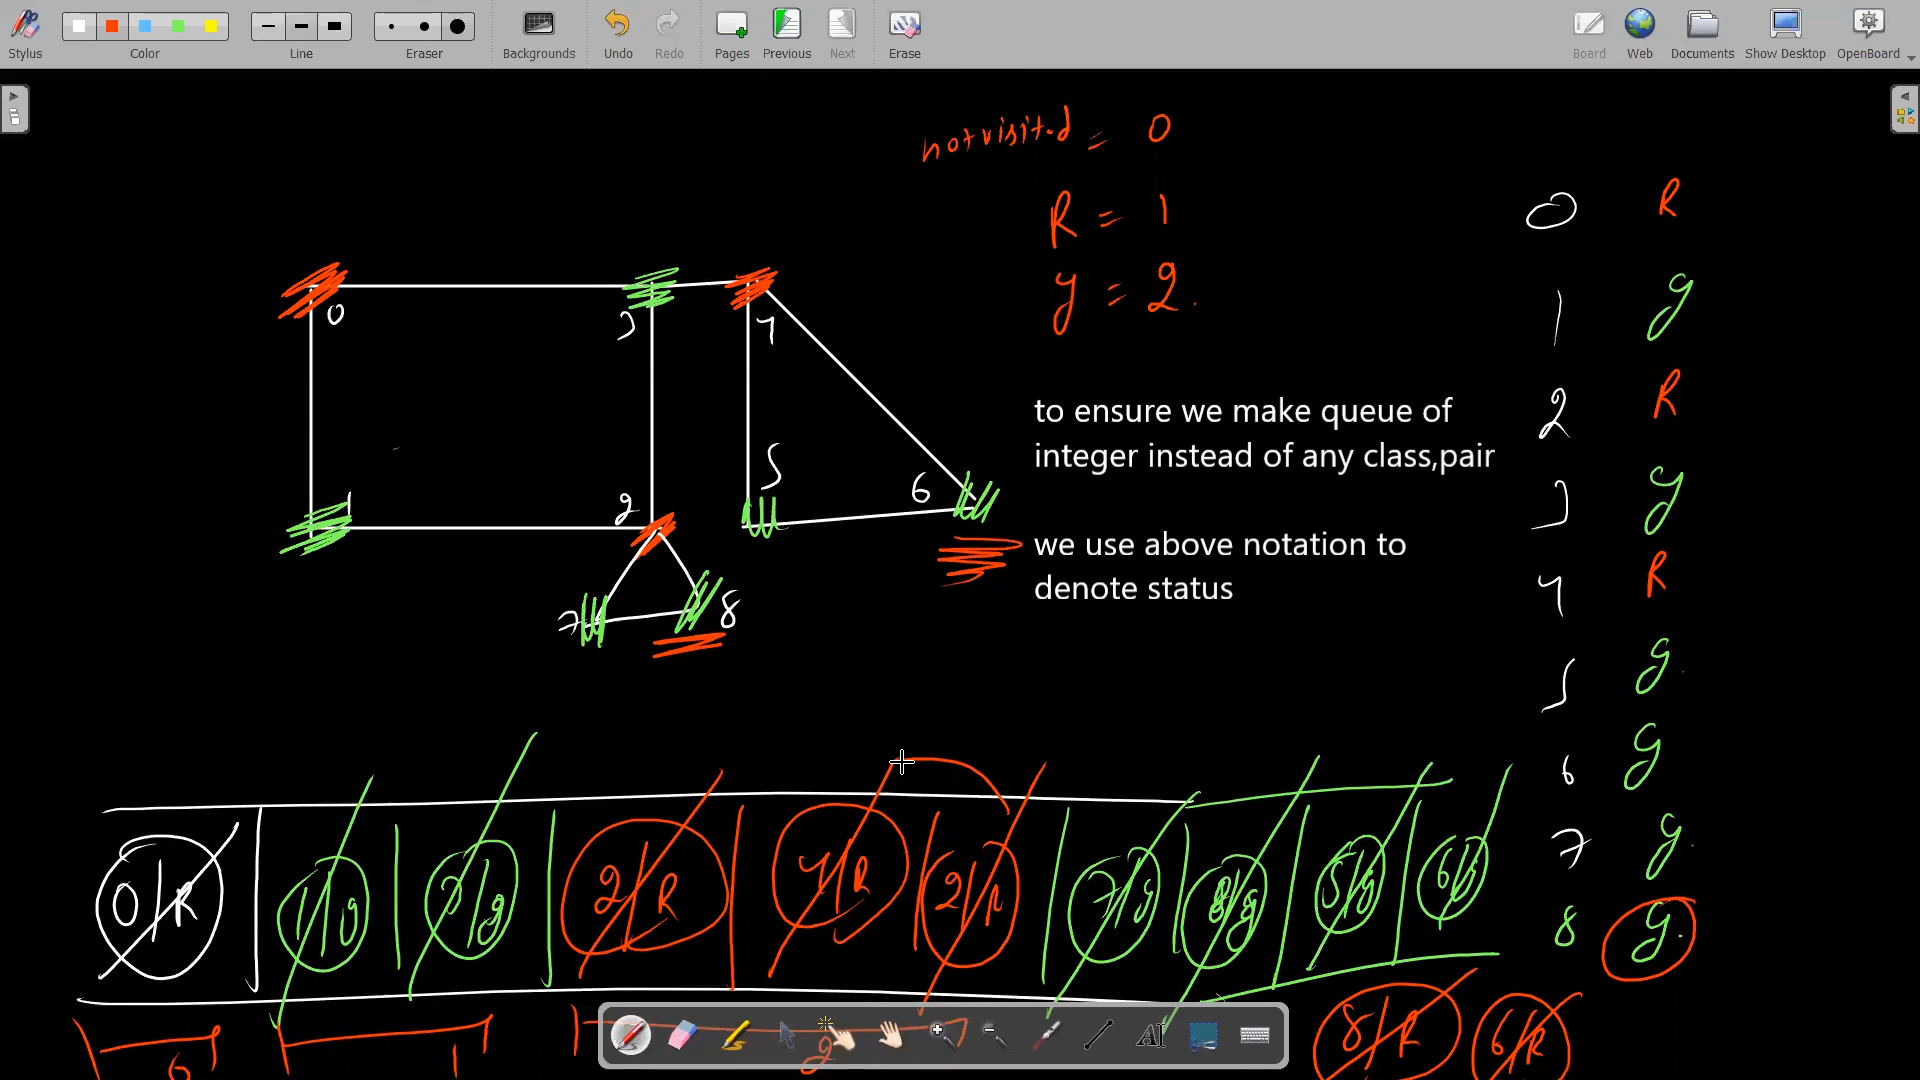 Stylus Color Line Eraser Backgrounds Undo Redo Pages Previous Next Erase Board Web Documents Show Desktop OpenBoard
not visited = 0
R = 1
g = 2.
to ensure we make queue of
integer instead of any class,pair
we use above notation to
denote status
0 R
1 g
2 R
3 g
4 R
5 g.
6 g
7 g.
8 g.
0
3
4
1
2
5
6
7
8
0/R 1/g 3/g 2/R 4/R 2/R 7/g 8/g 5/g 6/g
8/R 6/R
0 1 2
AI